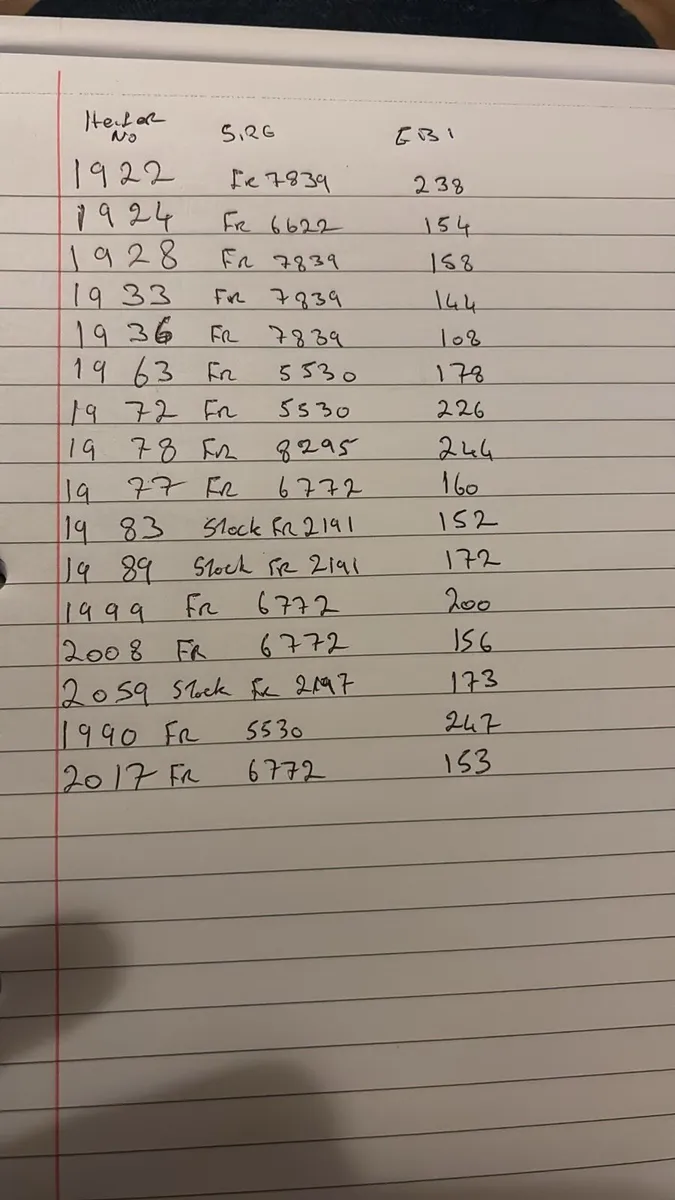 Heifer No SIRE EBI
1922 FR 7839 238
1924 FR 6622 154
1928 FR 7839 158
1933 FR 7839 144
1936 FR 7839 108
1963 FR 5530 178
1972 FR 5530 226
1978 FR 8295 244
1977 FR 6772 160
1983 Stock FR 2191 152
1989 Stock FR 2191 172
1999 FR 6772 200
2008 FR 6772 156
2059 Stock FR 173
1990 FR 5530 247
2017 FR 6772 153